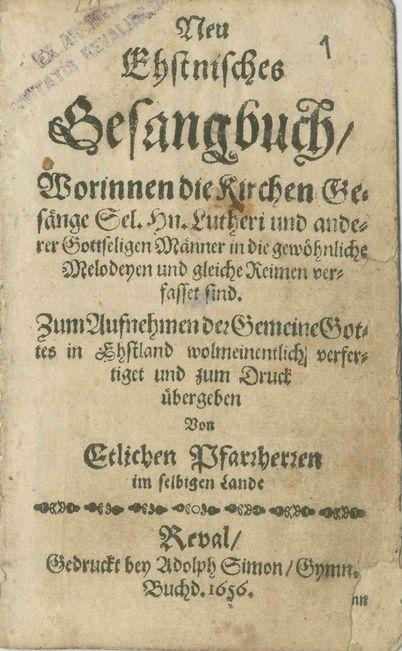 Neu
Ehstnisches
Gesangbuch/
Worinnen die Kirchen Ge-
sänge Sel. Hn. Lutheri und ande-
rer Gottseligen Männer in die gewöhnliche
Melodeyen und gleiche Reimen ver-
fasset sind.
Zum Aufnehmen der Gemeine Got-
tes in Ehstland wolmeinentlich verfer-
tiget und zum Druck
übergeben
Von
Etlichen Pfarrherren
im selbigen Lande
Reval/
Gedruckt bey Adolph Simon/ Gymn.
Buchd. 1656.
1
EX
REVALIENS